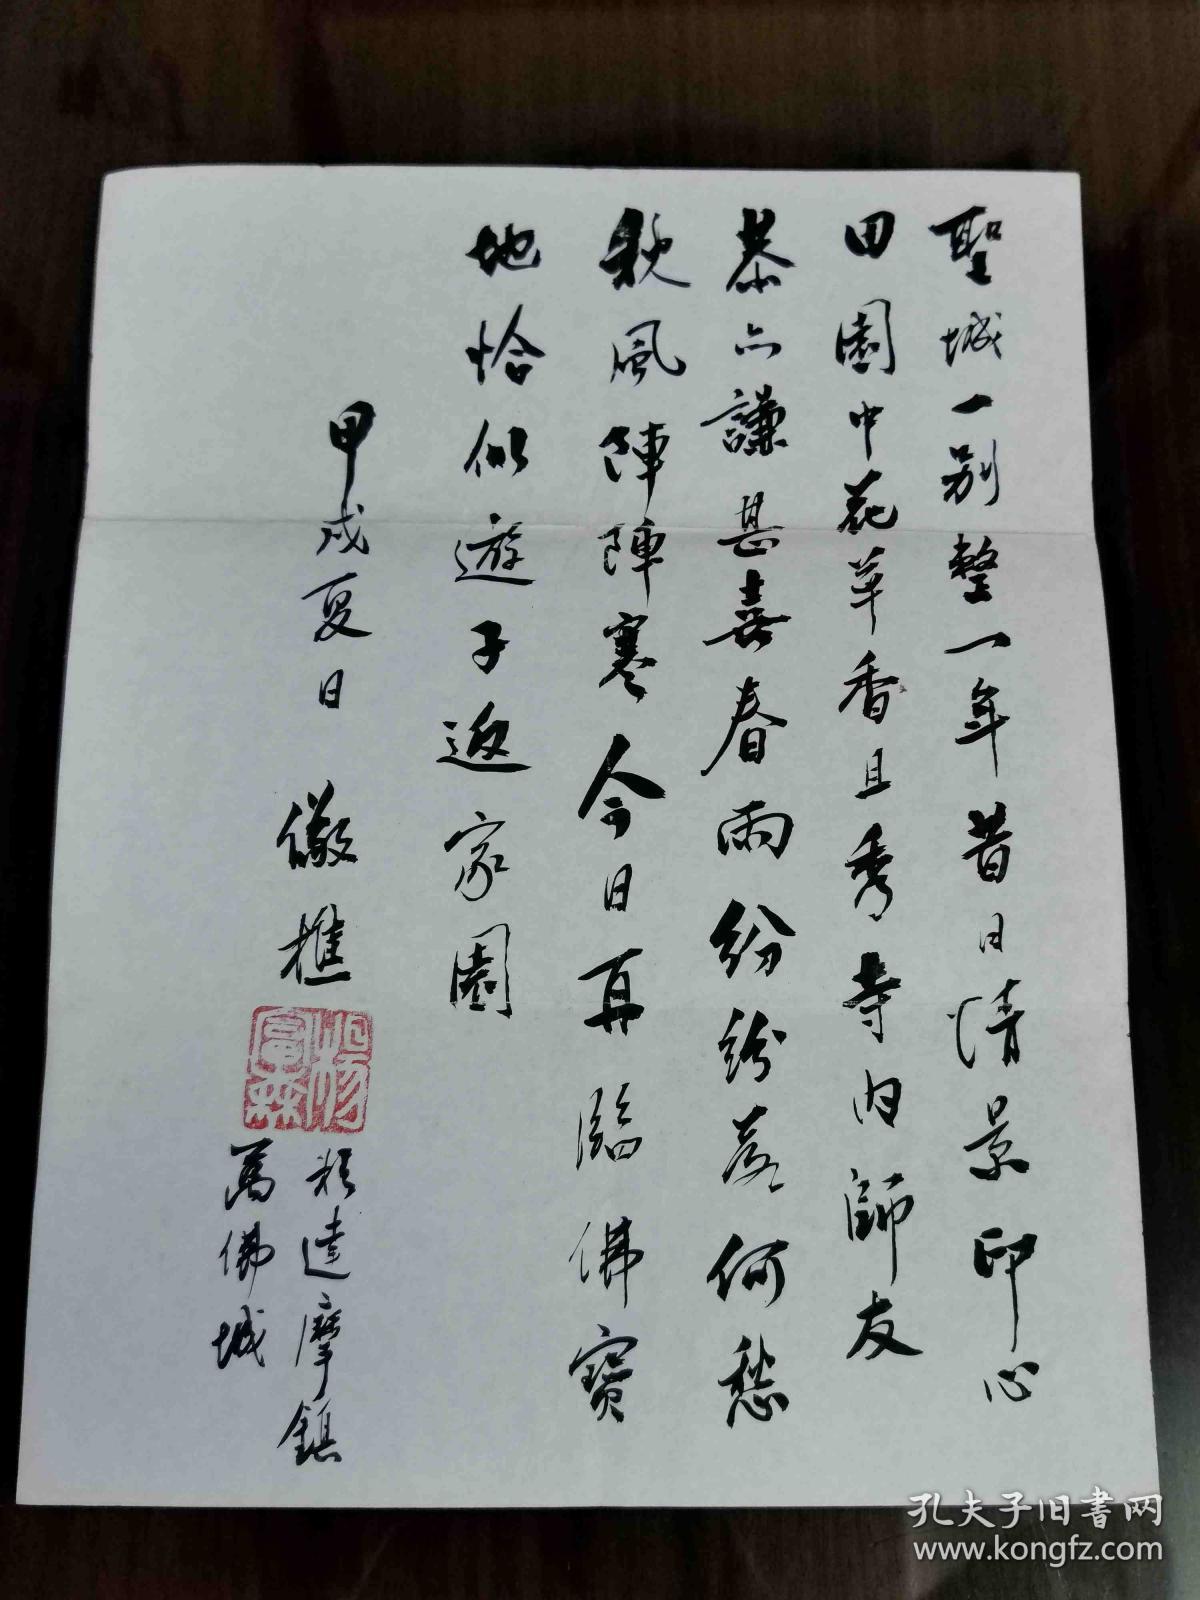 聖城一别整一年昔日情景印心
田園中花草香且秀寺内師友
恭亦謙甚喜春雨紛紛落何愁
秋風陣陣寒今日再臨佛寶
地恰似遊子返家園
甲戌夏日 儆樵
楊富森
於達摩鎮
萬佛城
孔夫子旧书网
www.kongfz.com